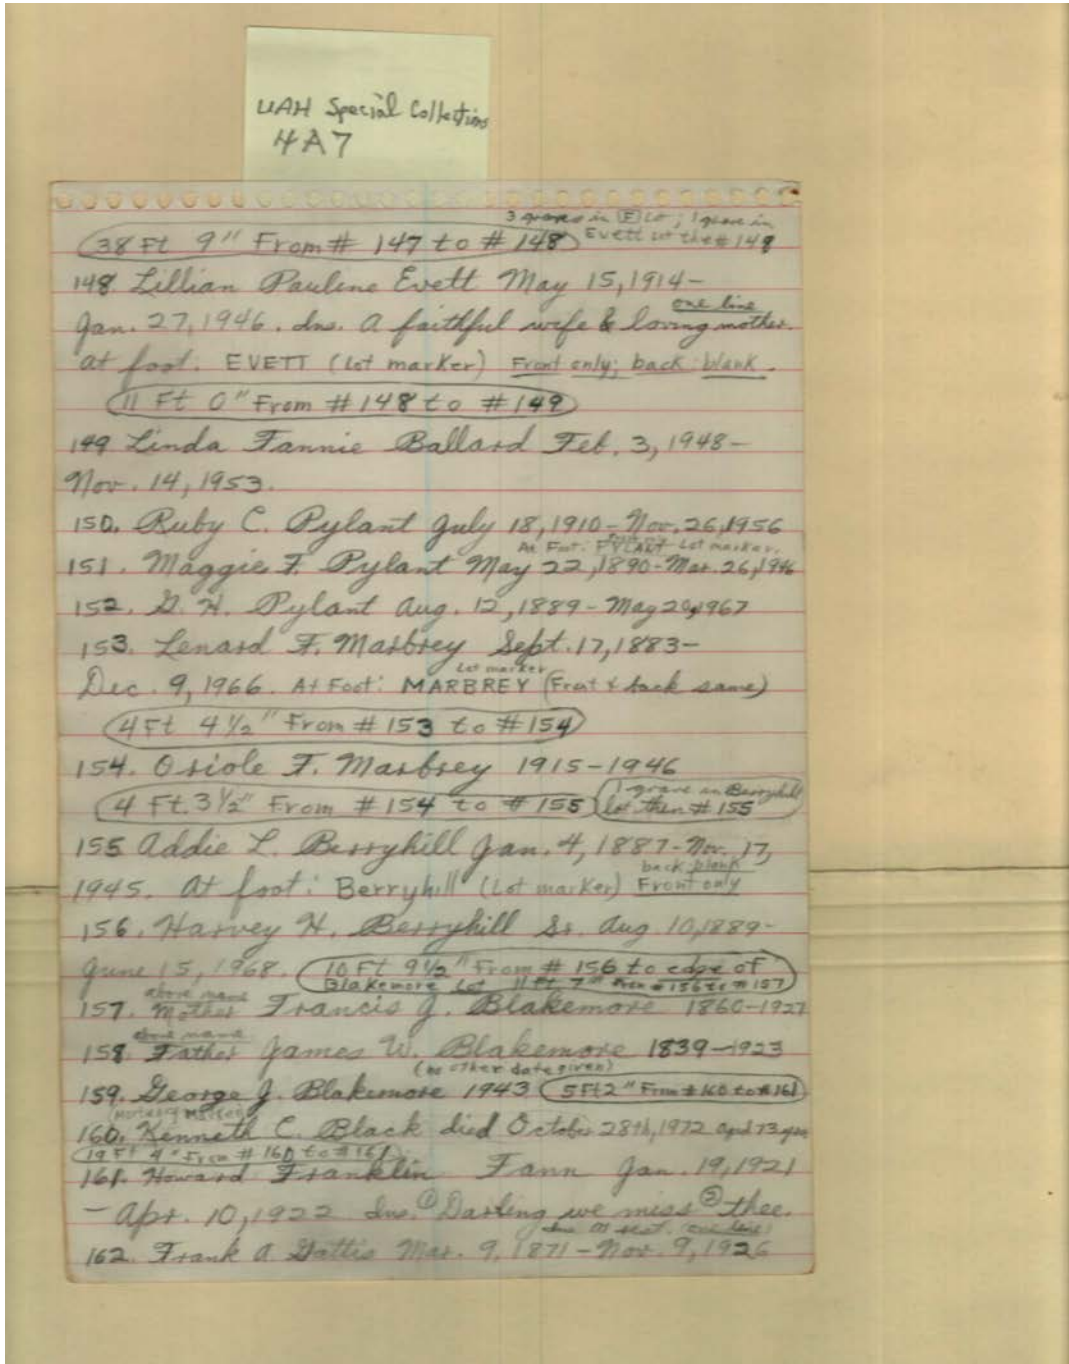 UAH Special Collections
4A7
3 graves in F Lot; 1 grave in
38 Ft 9" From # 147 to # 148 Evett lot then # 148
148 Lillian Pauline Evett May 15, 1914-
Jan. 27, 1946. Ins. A faithful wife & loving mother. one line
at foot: EVETT (Lot marker) Front only; back: blank.
11 Ft 0" From # 148 to # 149
149 Linda Fannie Ballard Feb. 3, 1948-
Nov. 14, 1953.
150. Ruby C. Pylant July 18, 1910-Nov. 26, 1956
At Foot: PYLANT Lot marker.
151. Maggie F. Pylant May 22, 1890-Mar. 26, 1946
152. G. H. Pylant Aug. 12, 1889-May 1967
153. Lenard F. Marbrey Sept. 17, 1883-
Lot marker
Dec. 9, 1966. At Foot: MARBREY (Front & back same)
4 Ft 4 1/2" From # 153 to # 154
154. Oriole F. Marbrey 1915-1946
4 Ft. 3 1/2" From # 154 to # 155 1 grave in Berryhill
lot then # 155
155 Addie L. Berryhill Jan. 4, 1887-Nov. 17,
back: blank
1945. At foot: Berryhill (Lot marker) Front only
156. Harvey H. Berryhill Sr. Aug. 10, 1889-
June 15, 1968. 10 Ft 9 1/2" From # 156 to edge of
Blakemore Lot 11 Ft 7" From # 156 to # 157
above name
157. Mother Francis J. Blakemore 1860-1927
above name
158. Father James W. Blakemore 1839-1923
(no other date given)
159. George J. Blakemore 1943 5 Ft 2" From # 160 to # 161
(Mortuary Marker)
160. Kenneth C. Black died October 28th, 1972 aged 73 yrs
19 Ft 4" From # 160 to # 161
161. Howard Franklin Fann Jan. 19, 1921
- Apr. 10, 1922 Ins. ① Darling we miss ② thee.
Ins. At rest. (one line)
162. Frank A Gattis Mar. 9, 1871-Nov. 9, 1926